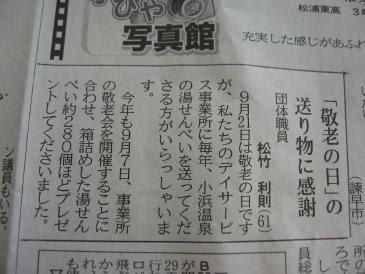 写真館
松浦東高　3年
充実した感じがあふれ
「敬老の日」の
送り物に感謝
(諫早市)
団体職員
松竹　利則(61)
9月21日は敬老の日です
が、私たちのデイサービ
ス事業所に毎年、小浜温泉
の湯せんぺいを送ってくだ
さる方がいらっしゃいま
す。
今年も9月7日、事業所
の敬老会を開催することに
合わせ、箱詰めした湯せん
ぺい約280個ほどプレゼ
ントしてくださいました。
ン議員もいる。